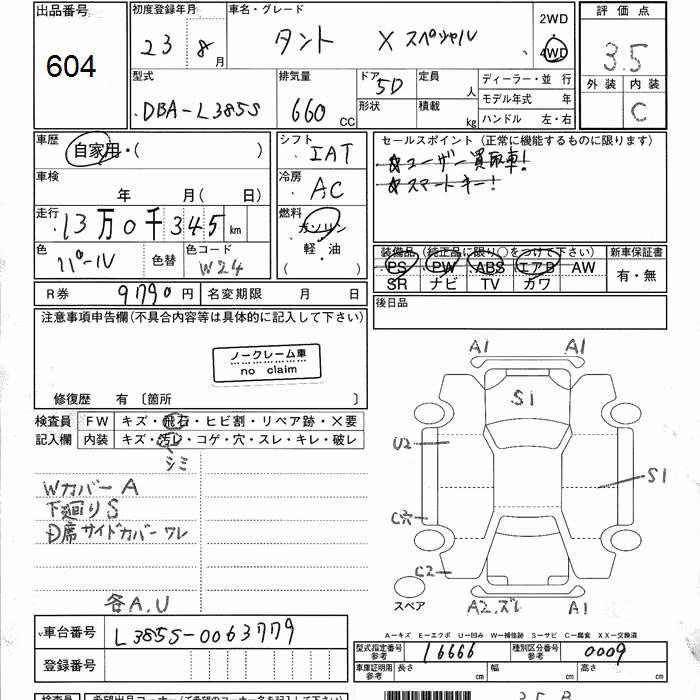 出品番号 604
初度登録年月 23 8月
車名・グレード タント X スペシャル
2WD 4WD
評価点 3.5
外装 内装 C
型式 DBA-L385S
排気量 660 CC
ドア 5D 形状
定員 人 積載 kg
ディーラー・並行
モデル年式 年
ハンドル 左・右
車歴 自家用・( )
車検 年 月( 日)
走行 13万0千345km
色 パール 色替 色コード W24
シフト IAT
冷房 AC
燃料 ガソリン・軽・油 ( )
セールスポイント(正常に機能するものに限ります)
☆ユーザー買取車!
☆スマートキー!
装備品(純正品に限り○をつけて下さい) 新車保証書
PS PW ABS エアB AW 有・無
SR ナビ TV カワ
R券 9790円 名変期限 月 日
後日品
注意事項申告欄(不具合内容等は具体的に記入して下さい)
ノークレーム車
no claim
修復歴 有 〔箇所 〕
検査員 FW キズ・飛石・ヒビ割・リペア跡・X要
記入欄 内装 キズ・汚レ・コゲ・穴・スレ・キレ・破レ
シミ
Wカバー A
下廻り S
D席サイドカバー ワレ
各A.U
A1 A1
S1
U2
S1
C穴
C2
スペア
A2.ズレ A1
A－キズ E－エクボ U－凹み W－補修跡 S－サビ C－腐食 XX－交換済
車台番号 L385S-0063779
登録番号
型式指定番号 参考 16666 種別区分番号 参考 0009
車庫証明用 参考 長さ cm 幅 cm 高さ cm